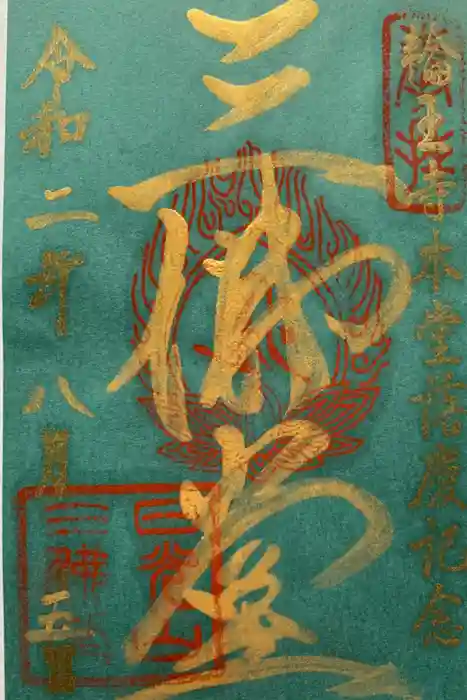 輪王寺本堂落慶記念
三佛堂
日光山
三佛
令和二年八月五日